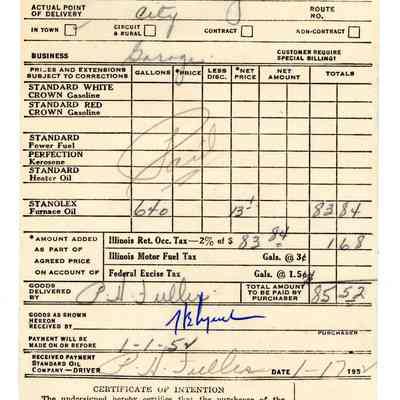 ACTUAL POINT OF DELIVERY City ROUTE NO.
IN TOWN CIRCUIT & RURAL CONTRACT NON-CONTRACT
BUSINESS Garage CUSTOMER REQUIRE SPECIAL BILLING?
PRICES AND EXTENSIONS SUBJECT TO CORRECTIONS GALLONS *PRICE LESS DISC. *NET PRICE NET AMOUNT TOTALS
STANDARD WHITE
CROWN Gasoline
STANDARD RED
CROWN Gasoline
STANDARD
Power Fuel
PERFECTION
Kerosene
STANDARD
Heater Oil
Paid
STANOLEX
Furnace Oil 640 13 1 83 84
*AMOUNT ADDED AS PART OF AGREED PRICE ON ACCOUNT OF
Illinois Ret. Occ. Tax—2% of $ 83 84 1 68
Illinois Motor Fuel Tax Gals. @ 3¢
Federal Excise Tax Gals. @ 1.5¢
GOODS DELIVERED BY P. H. Fuller TOTAL AMOUNT TO BE PAID BY PURCHASER 85 52
GOODS AS SHOWN HEREON RECEIVED BY
PURCHASER
PAYMENT WILL BE MADE ON OR BEFORE 1-1-52
RECEIVED PAYMENT STANDARD OIL COMPANY—DRIVER P. H. Fuller DATE 1-17 1952
CERTIFICATE OF INTENTION
The undersigned hereby certifies that the purchase of the